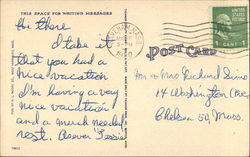 THIS SPACE FOR WRITING MESSAGES
Hi there
I take it
that you had a
nice vacation
I'm having a very
nice vacation
and a much needed
rest.
POST CARD
1 CENT 1
Mr & Mrs Richard
14 Washington Ave
Chelsea 50 Mass.